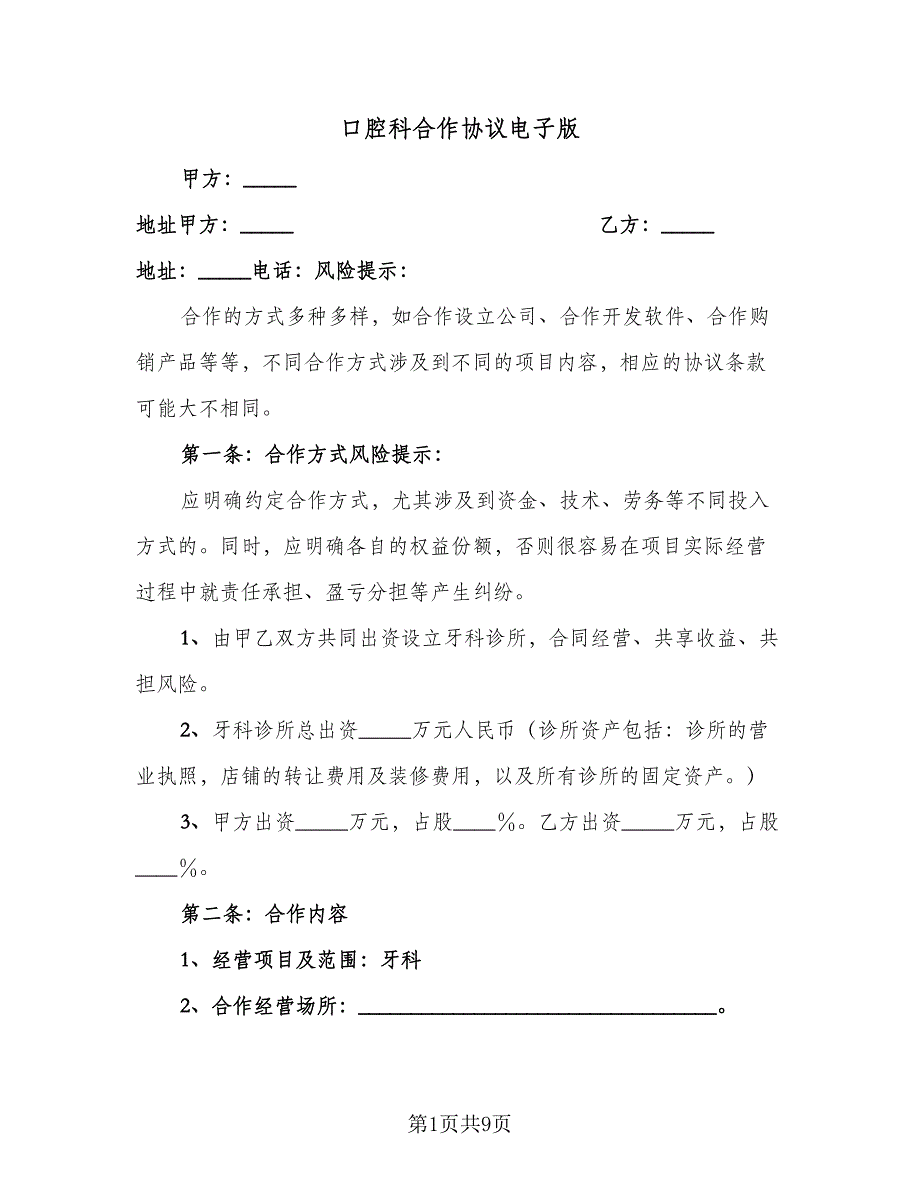 口腔科合作协议电子版
甲方：_____
地址甲方：_____ 乙方：_____
地址：_____电话：风险提示：
合作的方式多种多样，如合作设立公司、合作开发软件、合作购
销产品等等，不同合作方式涉及到不同的项目内容，相应的协议条款
可能大不相同。
第一条：合作方式风险提示：
应明确约定合作方式，尤其涉及到资金、技术、劳务等不同投入
方式的。同时，应明确各自的权益份额，否则很容易在项目实际经营
过程中就责任承担、盈亏分担等产生纠纷。
1、由甲乙双方共同出资设立牙科诊所，合同经营、共享收益、共
担风险。
2、牙科诊所总出资_____万元人民币（诊所资产包括：诊所的营
业执照，店铺的转让费用及装修费用，以及所有诊所的固定资产。）
3、甲方出资_____万元，占股____%。乙方出资_____万元，占股
____%。
第二条：合作内容
1、经营项目及范围：牙科
2、合作经营场所：__________________________________。
第1页共9页